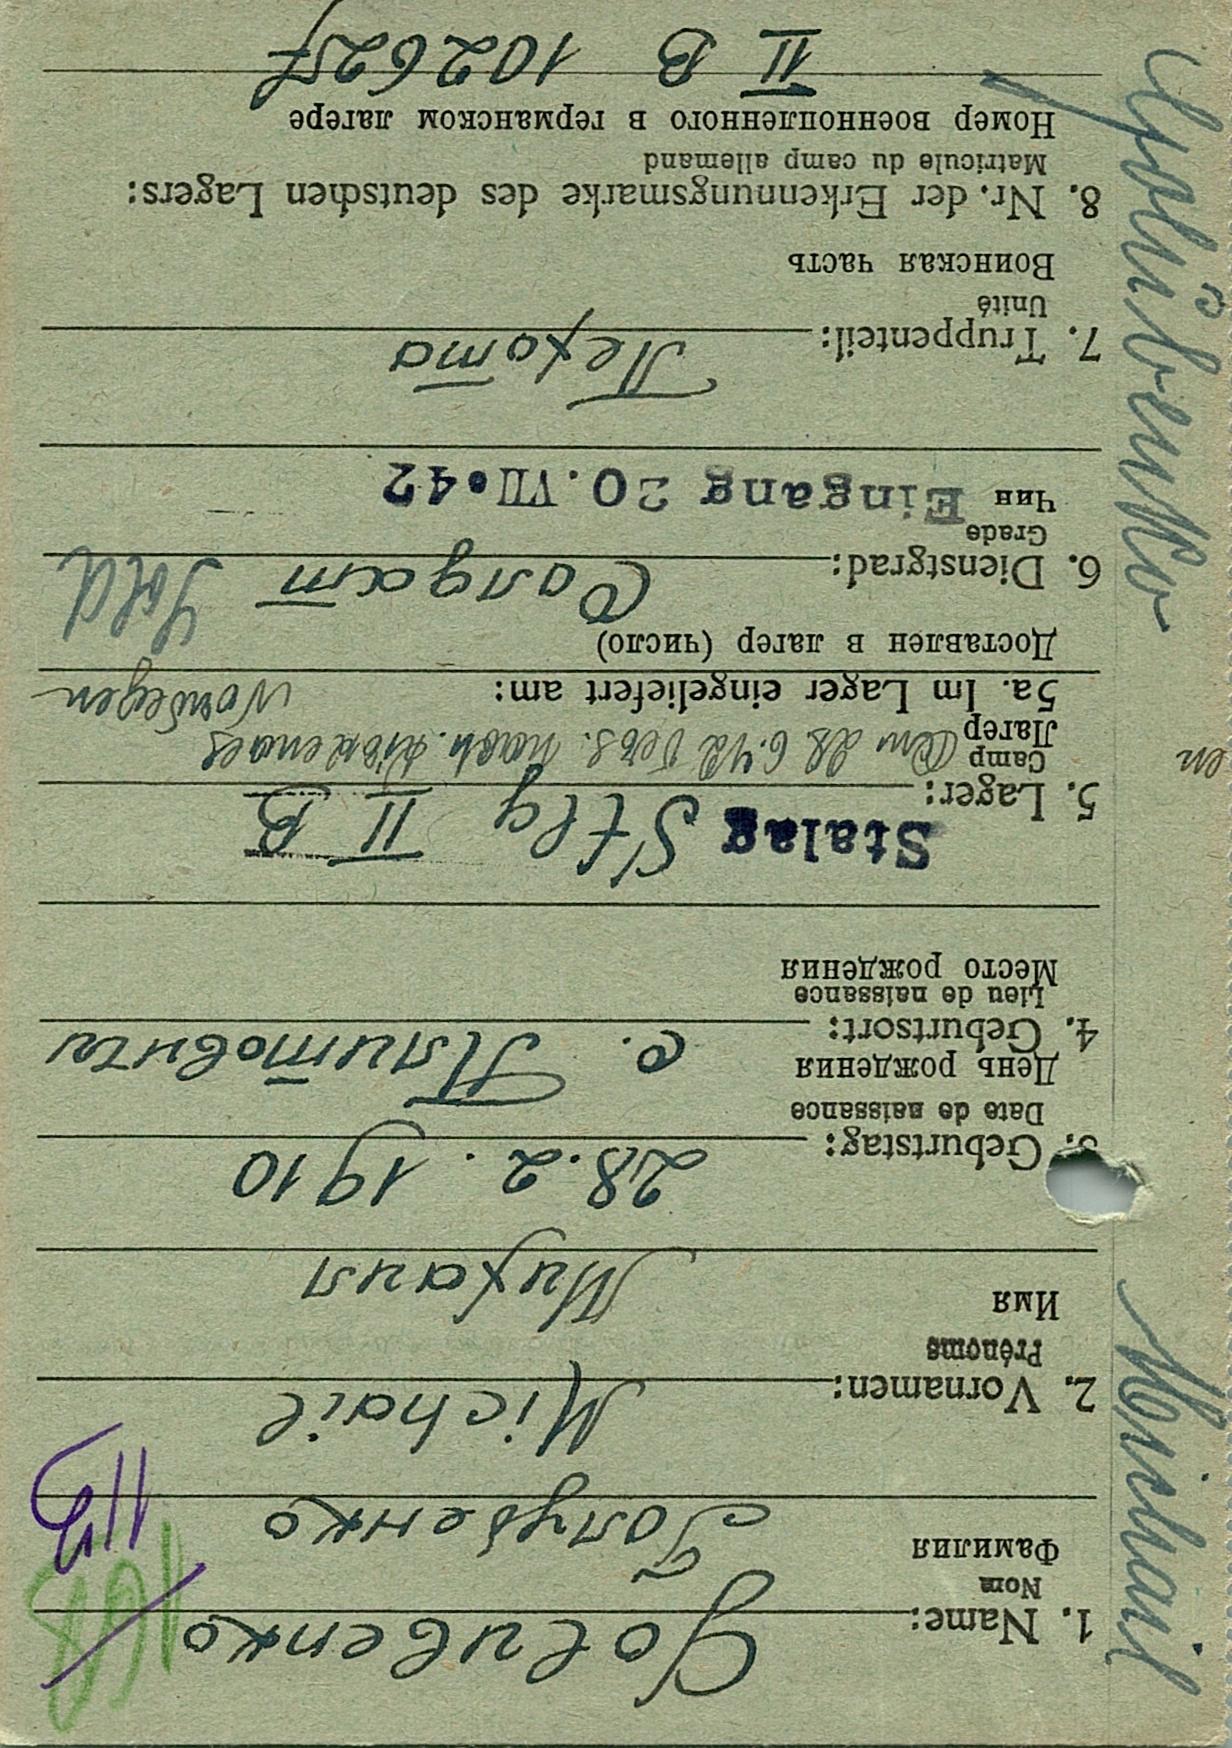 1. Name: Golubenko
Nom
Фамилия Голубенко
Michail
2. Vornamen:
Prénoms
Имя Михаил
28. 2. 1910
3. Geburtstag:
Date de naissance
День рождения
с. Плитовичи
4. Geburtsort:
Lieu de naissance
Место рождения
Stalag Stlg II B
5. Lager:
Camp Am 28 6.42 Vers. nach.
Лагер
Norwegen
5a. Im Lager eingeliefert am:
Доставлен в лагер (число)
Солдат Sold
6. Dienstgrad:
Grade
Чин Eingang 20. VII. 42
Пехота
7. Truppenteil:
Unité
Воинская часть
8. Nr. der Erkennungsmarke des deutschen Lagers:
Matricule du camp allemand
Номер военнопленного в германском лагере
II B 102627
Golubenko Michail
en